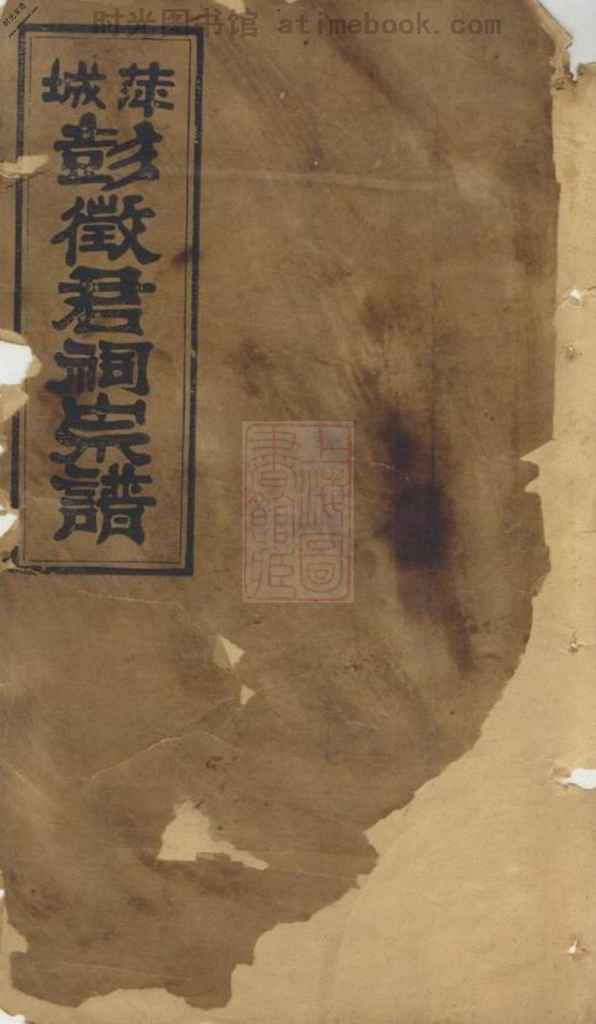 时光图书馆 atimebook.com
萍城
彭徵君祠宗譜
上海圖
書館藏